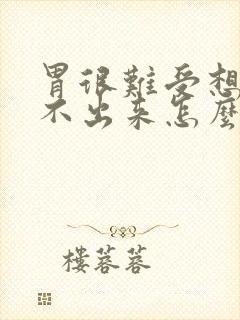 胃很難受想
不出來怎麼
樓蓉蓉